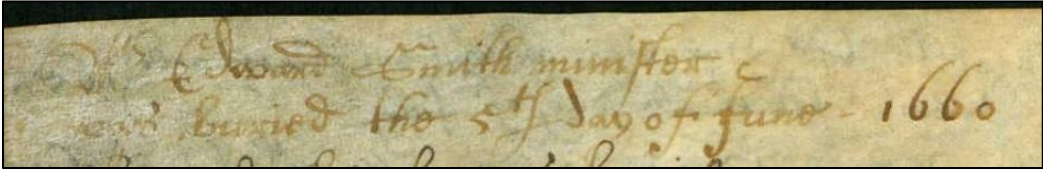 Mr Edward Smith minister
was buried the 5th day of June 1660